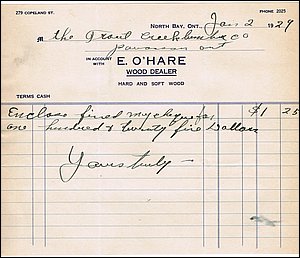 279 COPELAND ST. PHONE 2025
NORTH BAY, ONT., Jan 2 1929
M the Trout Creek Lumber Co
Powassan ont
IN ACCOUNT WITH E. O'HARE
WOOD DEALER
HARD AND SOFT WOOD
TERMS CASH
Enclose fined my cheque for $125
one hundred & twenty five Dollars
Yours truly -